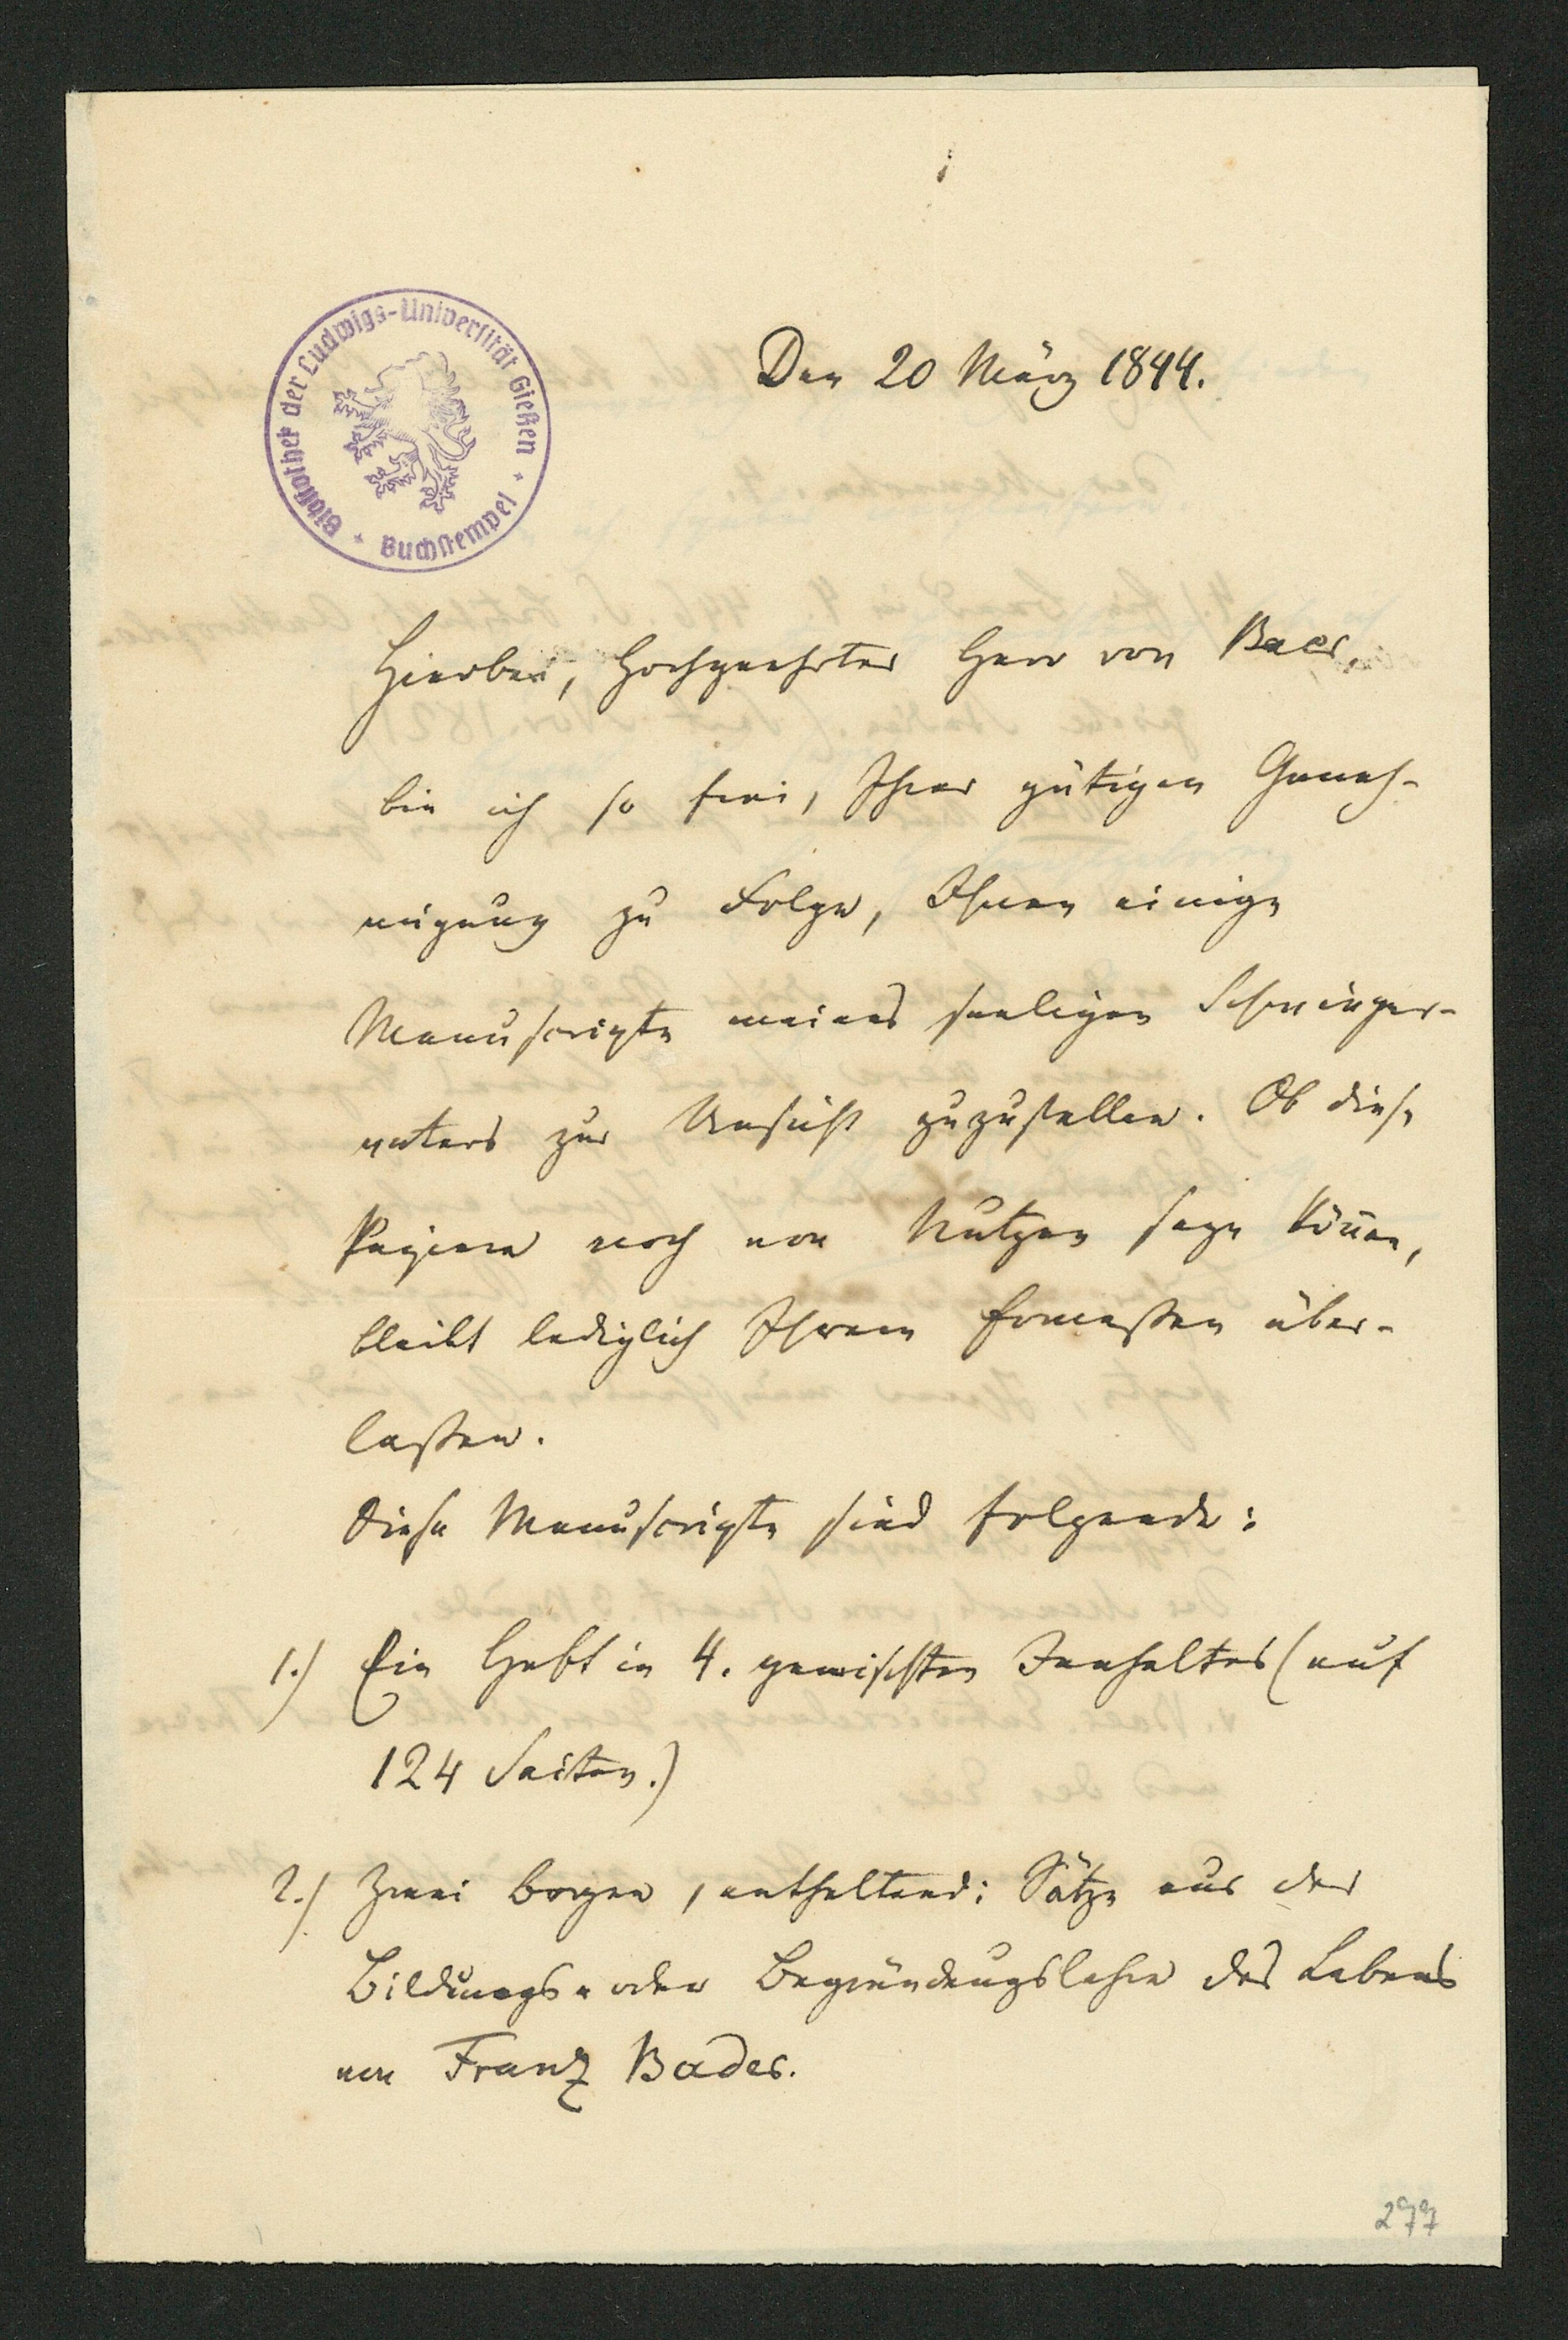 Bibliothek der Ludwigs-Universität Gießen
* Buchstempel *
Den 20 März 1844.
Hierbei, hochgeehrter Herr von Baer,
bin ich so frei, Ihrer gütigen Geneh-
migung zu Folge, Ihnen einige
Manuscripte meines seeligen Schwieger-
vaters zur Ansicht zuzustellen. Ob diese
Papiere noch von Nutzen seyn könen,
bleibt lediglich Ihrem Ermeßen über-
laßen.
Diese Manuscripte sind folgende:
1.) Ein Heft in 4. gemischten Innhaltes (auf
124 Seiten.)
2.) Zwei Bogen, enthaltend: Sätze aus der
Bildungs- oder Begründungslehre des Lebens
von Franz Bader.
277